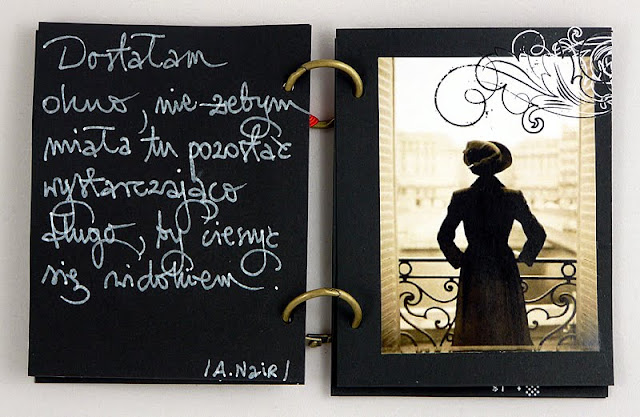 Dostałam
okno, nie żebym
miała tu pozostać
wystarczająco
długo, by cieszyć
się widokiem.
/A.Nair/